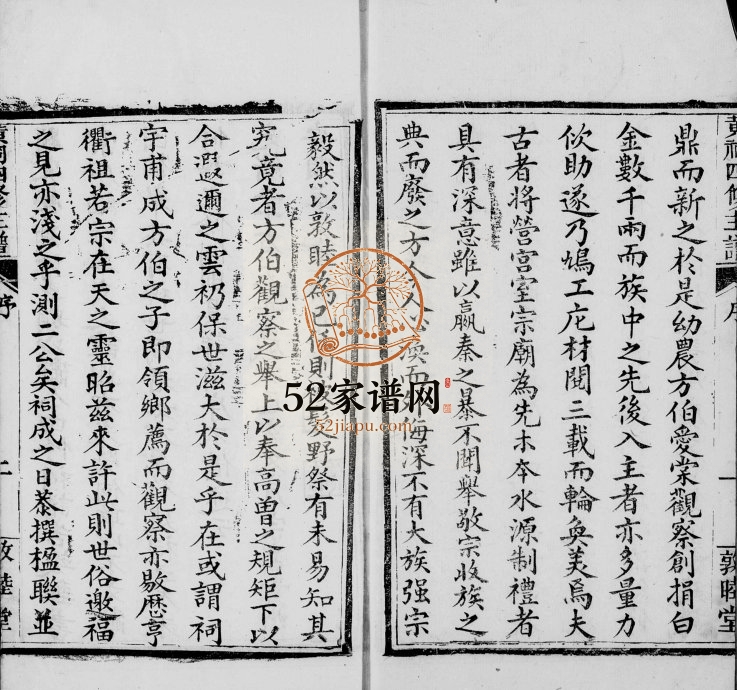 鼎而新之於是幼農方伯愛棠觀察創捐白
金數千兩而族中之先後入主者亦多量力
佽助遂乃鳩工庀材閱三載而輪奐美焉夫
古者將營宮室宗廟為先木本水源制禮者
具有深意雖以嬴秦之暴不聞舉敬宗收族之
典而廢之方今人心渙而悔深不有大族强宗
毅然以敦睦為則野祭有未易知其
究竟者方伯觀察之舉上以奉高曾之規矩下以
合遐邇之雲礽保世滋大於是乎在或謂祠
宇甫成方伯之子即領鄉薦而觀察亦敭歷亨
衢祖若宗在天之靈昭茲來許此則世俗邀福
之見亦淺之乎測二公矣祠成之日恭撰楹聯並
黃祠四修主譜
序
一
敦睦堂
序
二
敦睦堂
52家谱网
52jiapu.com